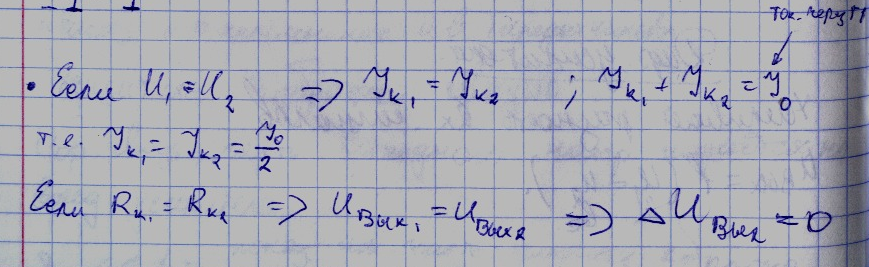 ток через ГТ
• Если U₁ = U₂ => Iк₁ = Iк₂ ; Iк₁ + Iк₂ = I₀
т.е. Iк₁ = Iк₂ = I₀/2
Если Rк₁ = Rк₂ => Uвых₁ = Uвых₂ => ΔUвых = 0